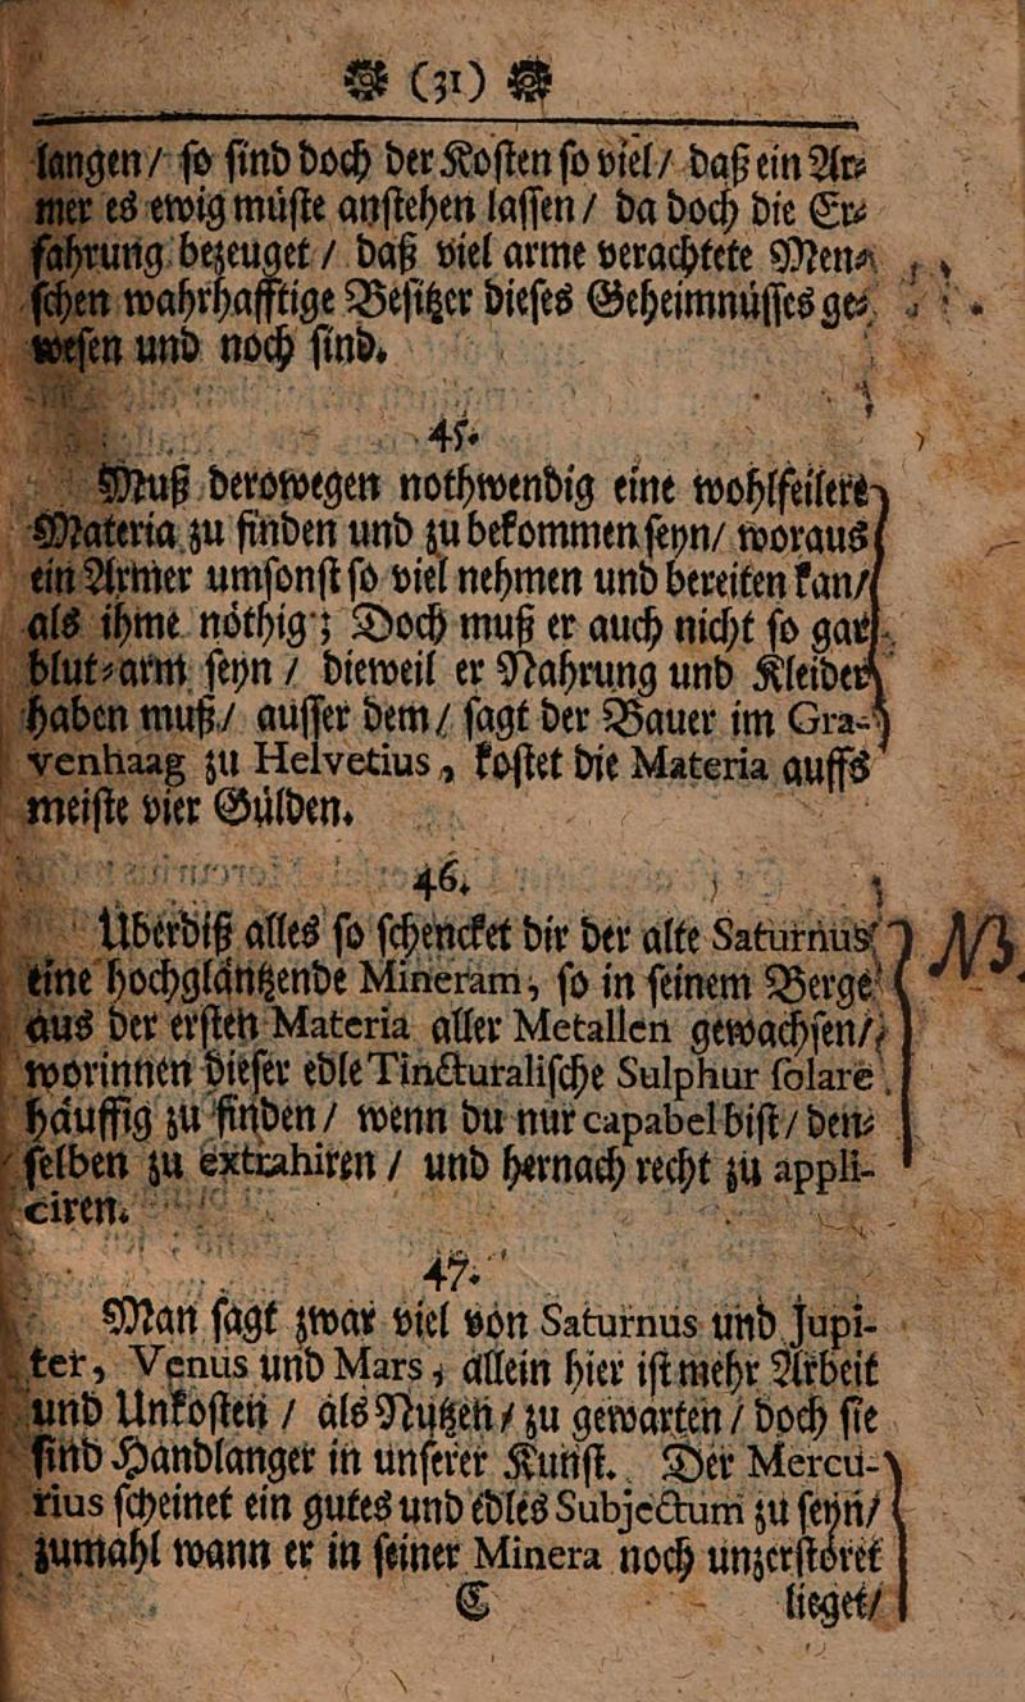 (31)
langen/ so sind doch der Kosten so viel/ daß ein Ar⸗
mer es ewig müste anstehen lassen/ da doch die Er⸗
fahrung bezeuget/ daß viel arme verachtete Men⸗
schen wahrhafftige Besitzer dieses Geheimnüsses ge⸗
wesen und noch sind.
45.
Muß derowegen nothwendig eine wohlfeilere
Materia zu finden und zu bekommen seyn/ woraus
ein Armer umsonst so viel nehmen und bereiten kan/
als ihme nöthig; Doch muß er auch nicht so gar
blut⸗arm seyn/ dieweil er Nahrung und Kleider
haben muß/ ausser dem/ sagt der Bauer im Gra-
venhaag zu Helvetius, kostet die Materia auffs
meiste vier Gülden.
46.
Uberdiß alles so schencket dir der alte Saturnus
eine hochgläntzende Mineram, so in seinem Berge
aus der ersten Materia aller Metallen gewachsen/
worinnen dieser edle Tincturalische Sulphur solare
häuffig zu finden/ wenn du nur capabel bist/ den⸗
selben zu extrahiren/ und hernach recht zu appli-
ciren.
NB.
47.
Man sagt zwar viel von Saturnus und Jupi-
ter, Venus und Mars, allein hier ist mehr Arbeit
und Unkosten/ als Nutzen/ zu gewarten/ doch sie
sind Handlanger in unserer Kunst. Der Mercu-
rius scheinet ein gutes und edles Subjectum zu seyn/
zumahl wann er in seiner Minera noch unzerstöret
C lieget/